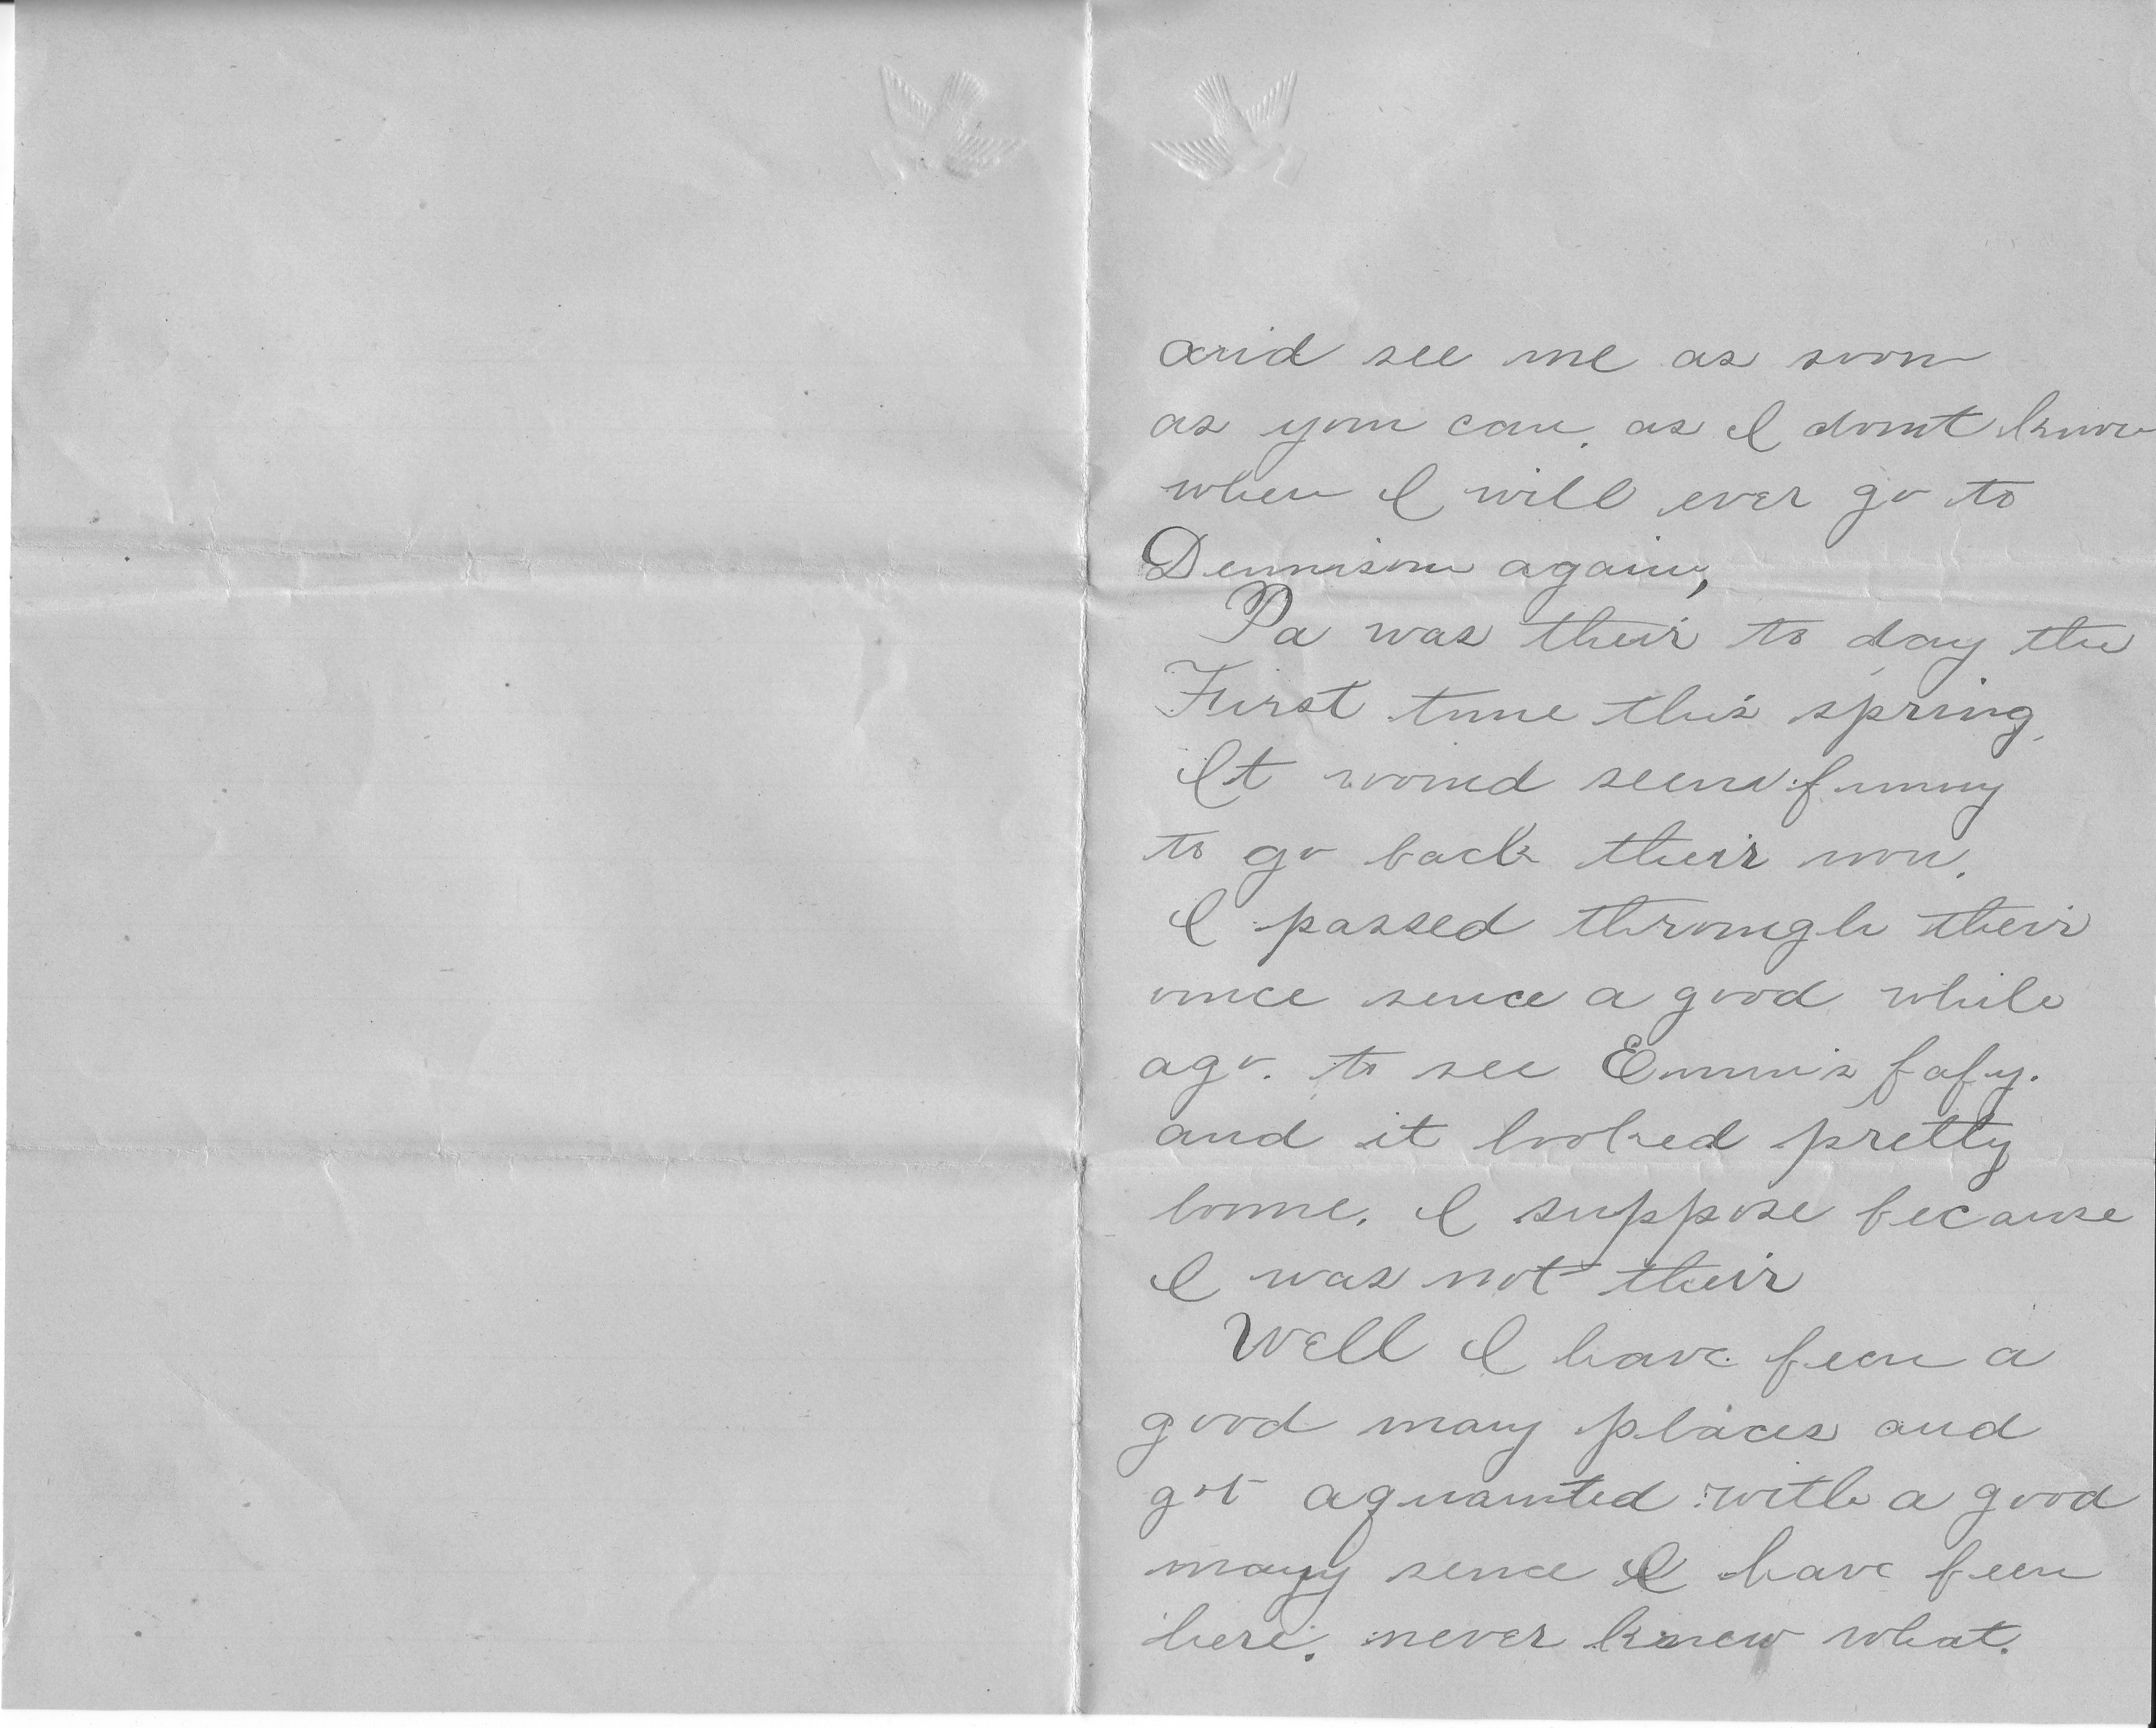 and see me as soon
as you can. as I dont know
when I will ever go to
Dennison again,
Pa was their to day the
First time this spring.
It would seem funny
to go back their now.
I passed through their
once sence a good while
ago. to see Emmis baby.
and it looked pretty
lonne. I suppose because
I was not their
Well I have been a
good many places and
got aquainted with a good
many sence I have been
here. never knew what.